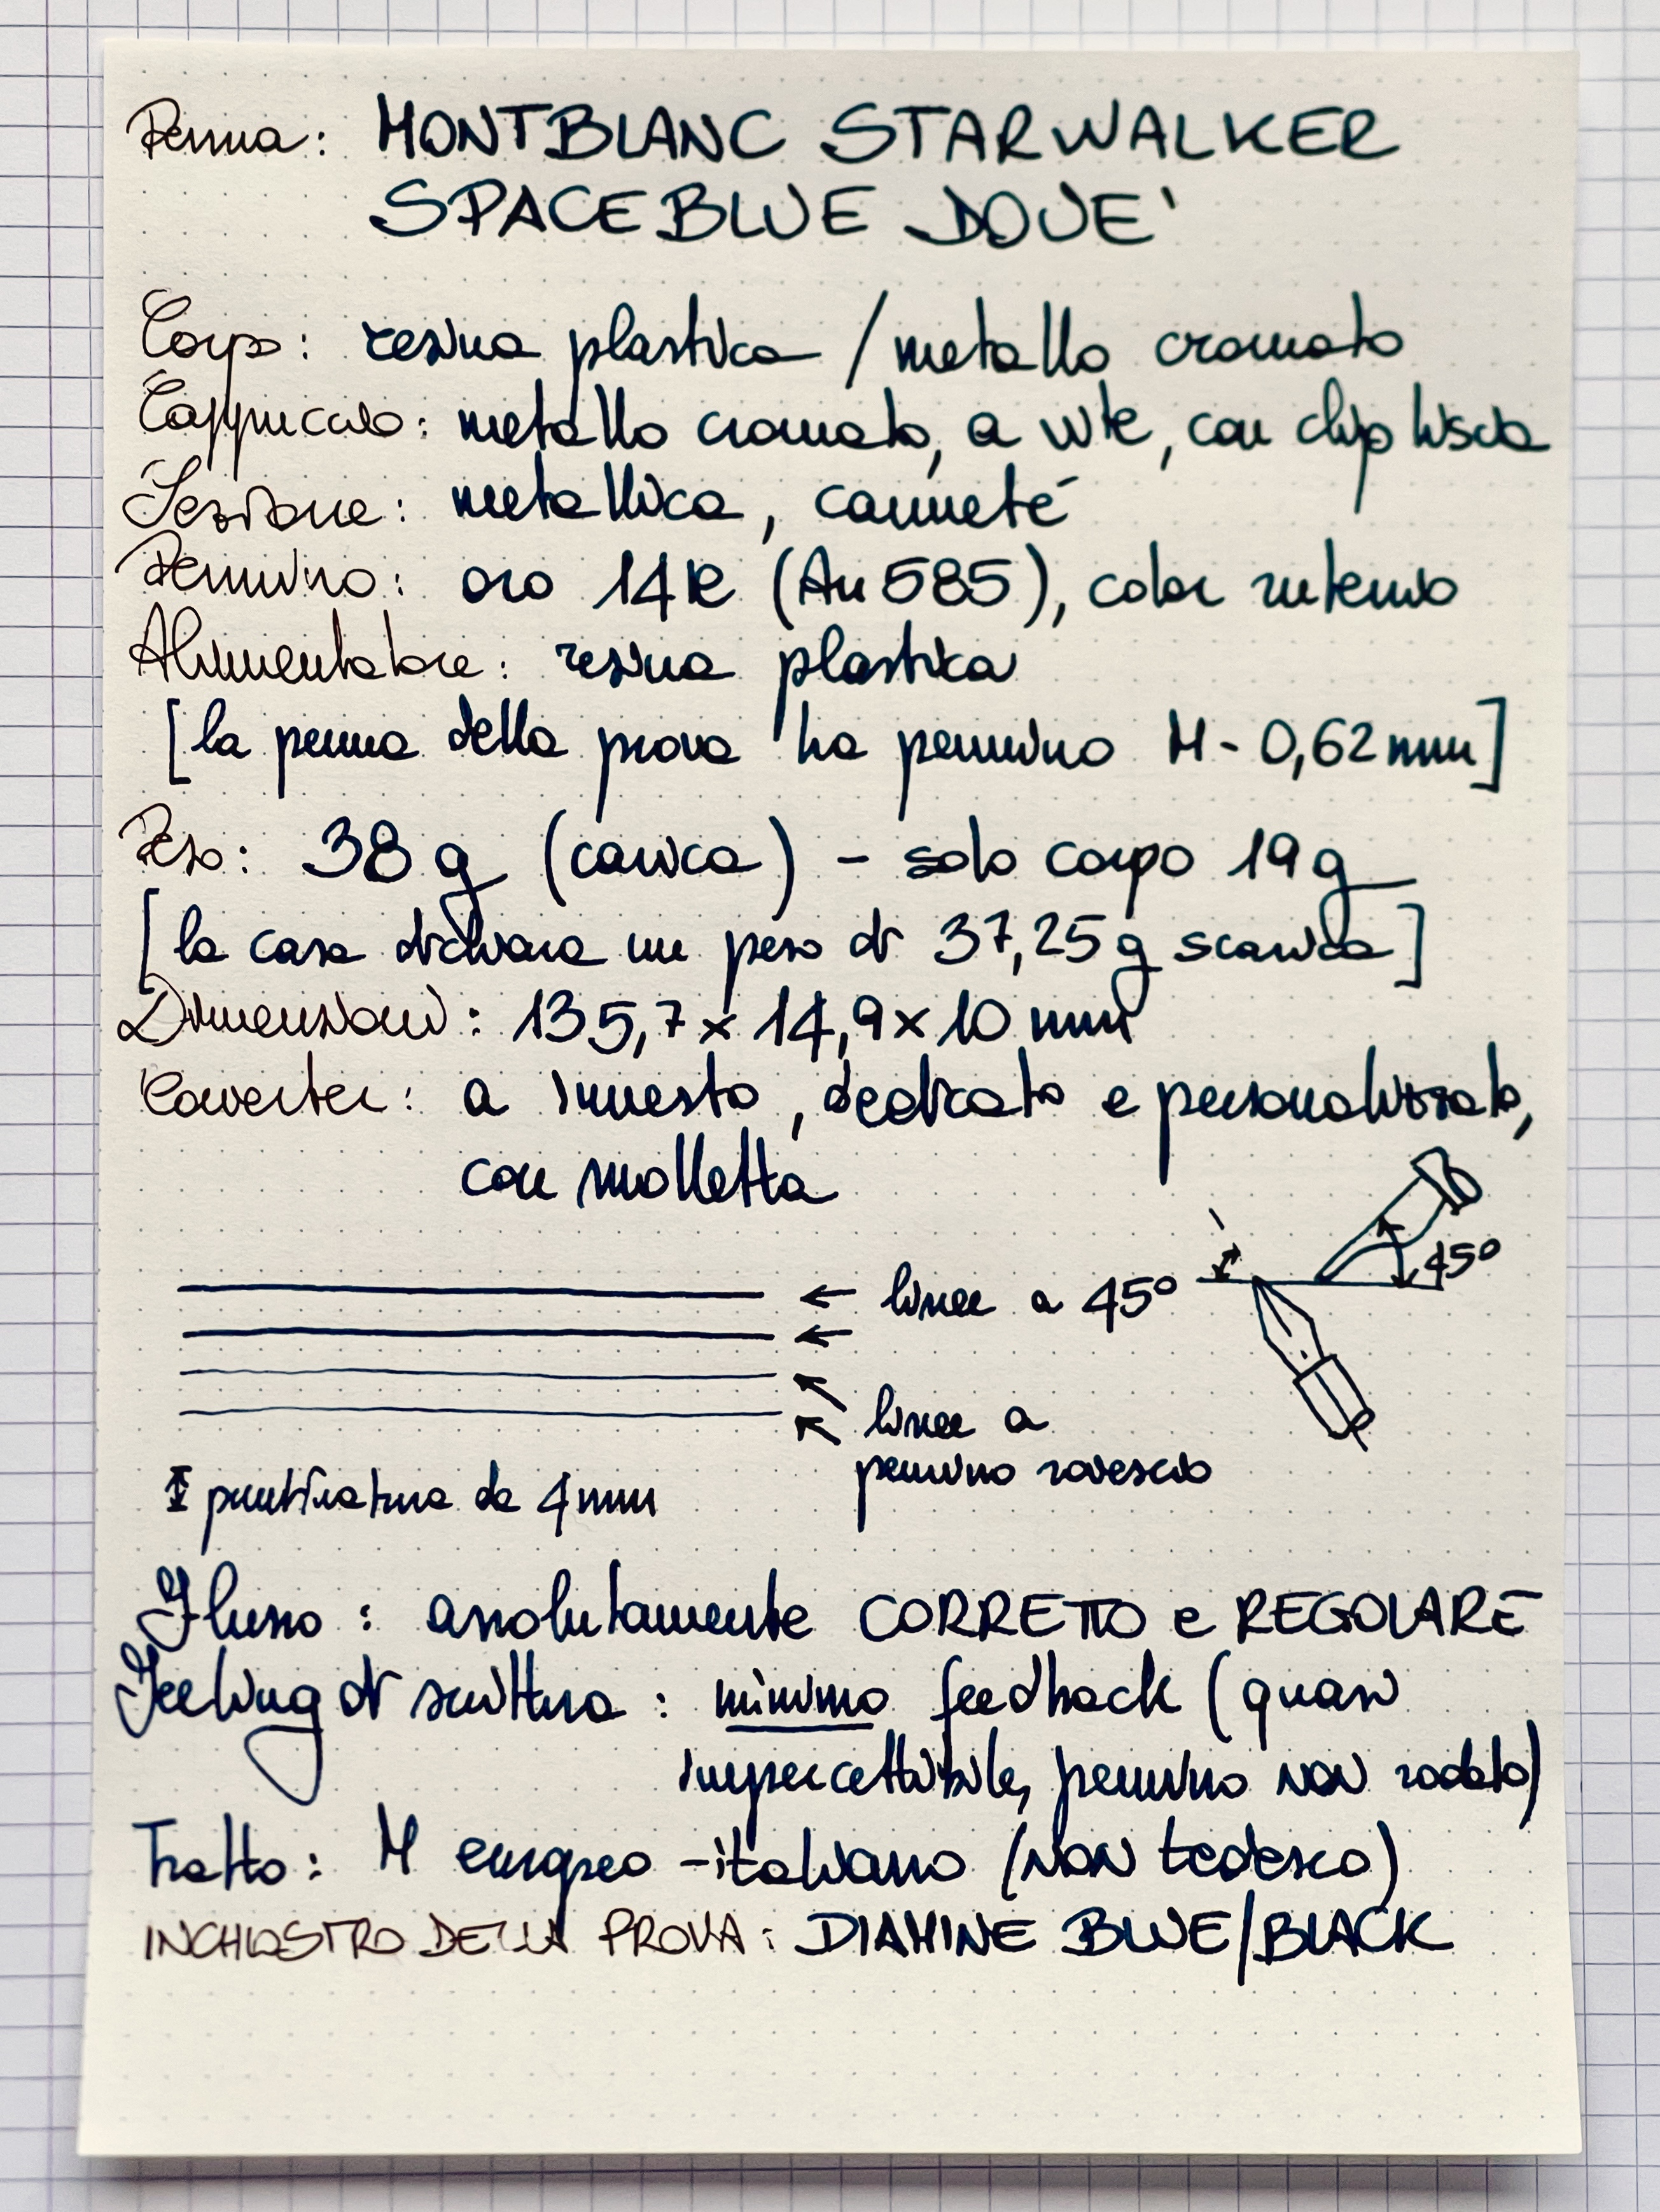 Penna: MONTBLANC STARWALKER
SPACEBLUE DOUE'
Corpo: resina plastica / metallo cromato
Cappuccio: metallo cromato, a vite, con clip liscia
Sezione: metallica, canneté
Pennino: oro 14K (Au 585), color rutenio
Alimentatore: resina plastica
[la penna della prova ha pennino M - 0,62 mm]
Peso: 38 g (carica) - solo corpo 19 g
[la casa dichiara un peso di 37,25 g scarica]
Dimensioni: 135,7 x 14,9 x 10 mm
Converter: a innesto, dedicato e personalizzato,
con molletta
45°
← linee a 45°
linee a
pennino rovescio
puntinatura da 4 mm
Flusso: assolutamente CORRETTO e REGOLARE
Feeling di scrittura: minimo feedback (quasi
impercettibile, pennino NON rodato)
Tratto: M europeo - italiano (NON tedesco)
INCHIOSTRO DELLA PROVA: DIAMINE BLUE/BLACK